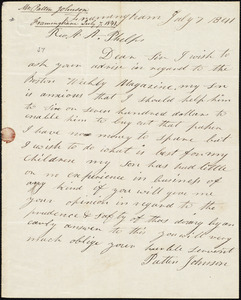 Mr Patten Johnson
Framingham July 7. 1841
Framingham July 7 1841
Rev. A. A. Phelps
Dear Sir I wish to
ask your advise in regard to the
Boston Weekly Magazine, my son
is anxious that I should help him
to six or seven hundred dollars to
enable him to buy out that paper
I have no money to spare but
I wish to do what is best for my
Children my Son has had little
or no experience in business of
any kind if you will give me
your opinion in regard to the
prudence & safty of that doing by an
early answer to this you will very
much oblige your humble servant
Patten Johnson